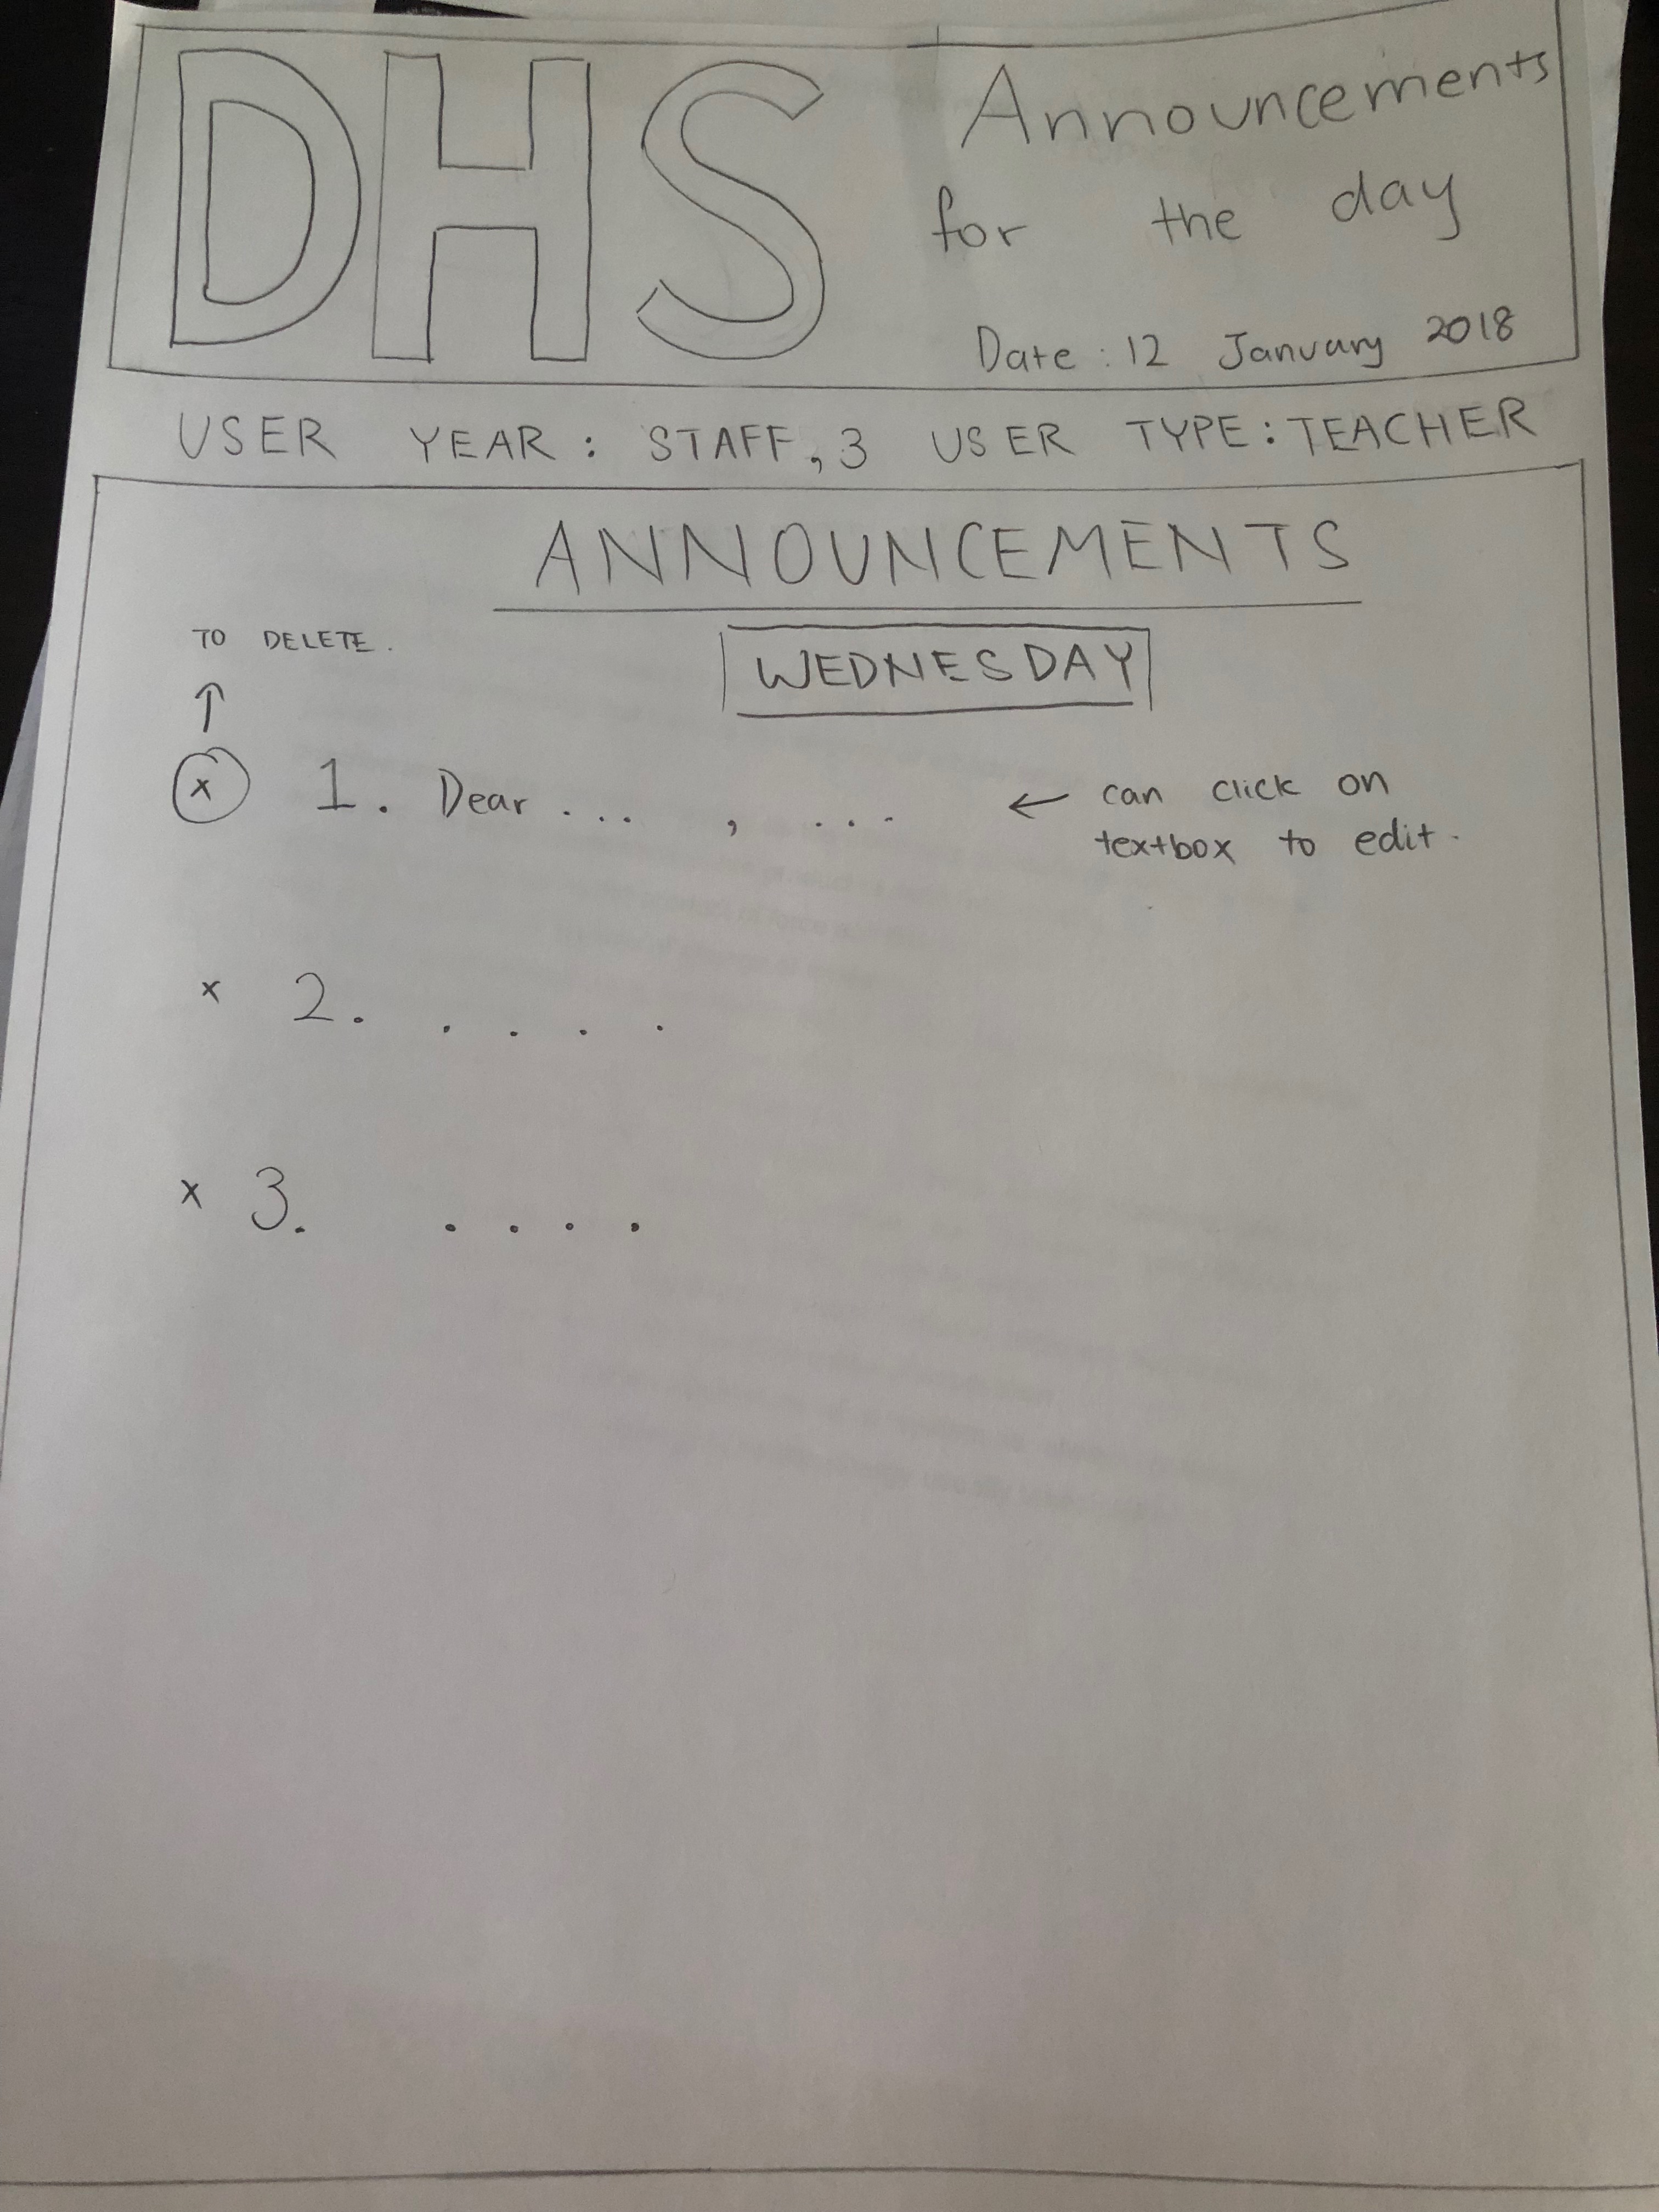 DHS Announcements
for the day
Date : 12 January 2018
USER YEAR : STAFF, 3 USER TYPE : TEACHER
ANNOUNCEMENTS
TO DELETE.
WEDNESDAY
↑
x 1. Dear ... , ... ← can click on
textbox to edit.
x 2. . . . .
x 3. . . . .